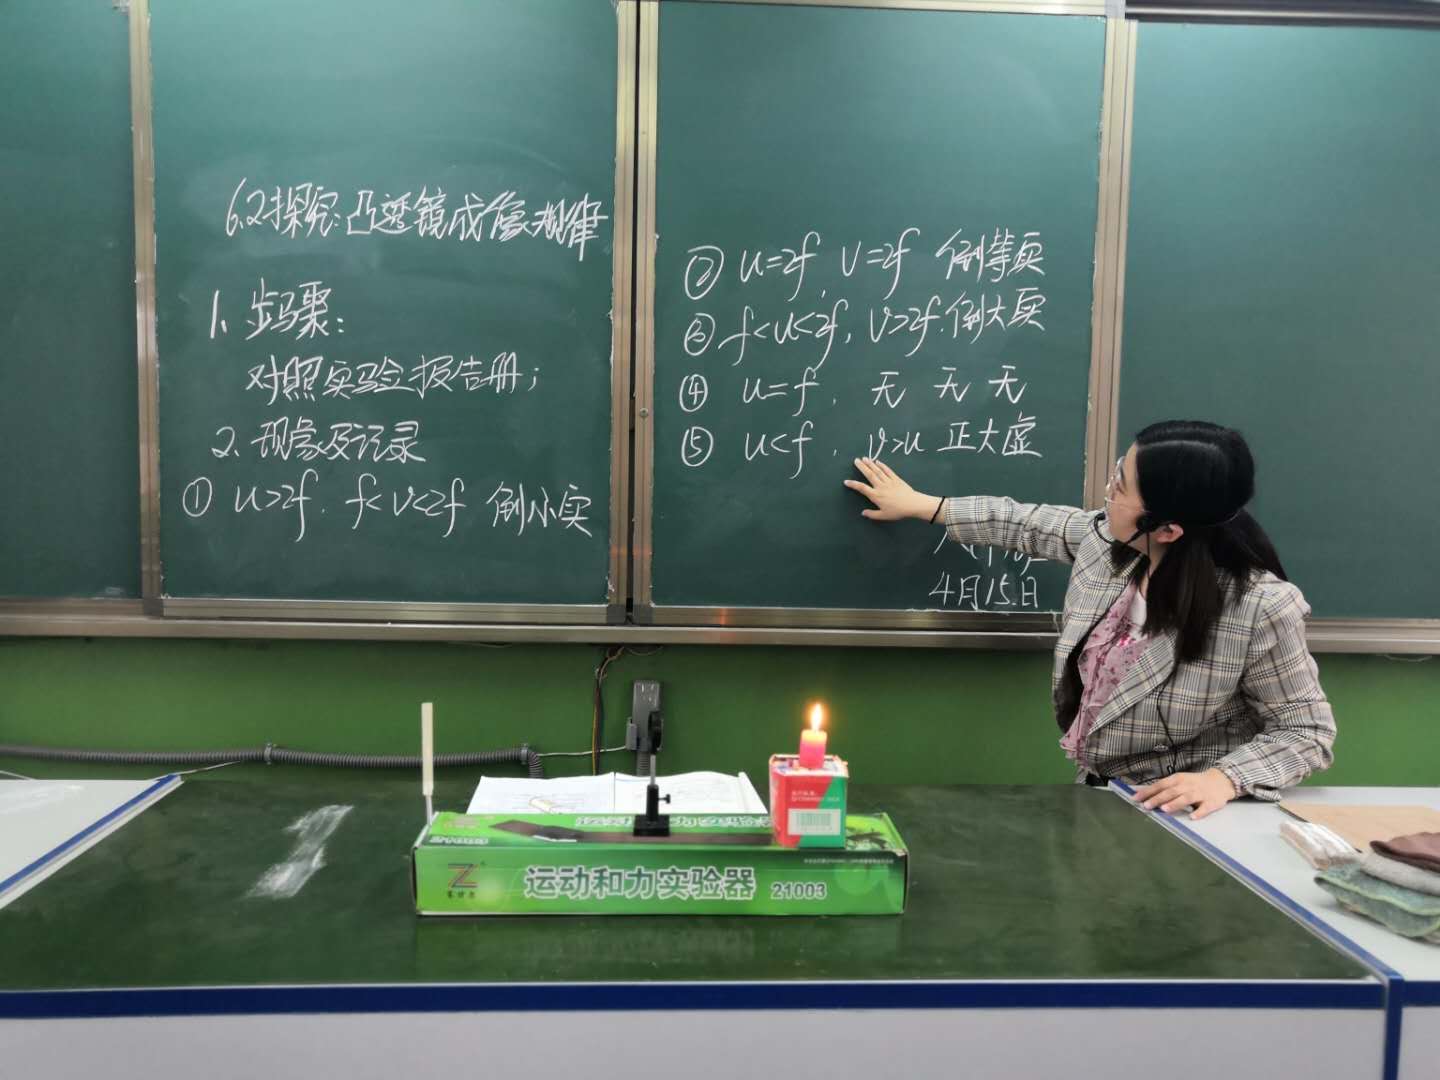 6.2探究:凸透镜成像规律
1、步骤:
对照实验报告册;
2、现象及记录
① u>2f. f<v<2f 倒小实
② u=2f, v=2f 倒等实
③ f<u<2f, v>2f.倒大实
④ u=f. 无 无 无
⑤ u<f. v>u 正大虚
4月15.日
21003
Z
运动和力实验器 21003